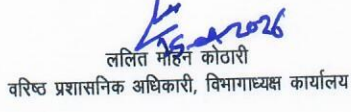 ललित मोहन कोठारी
वरिष्ठ प्रशासनिक अधिकारी, विभागाध्यक्ष कार्यालय